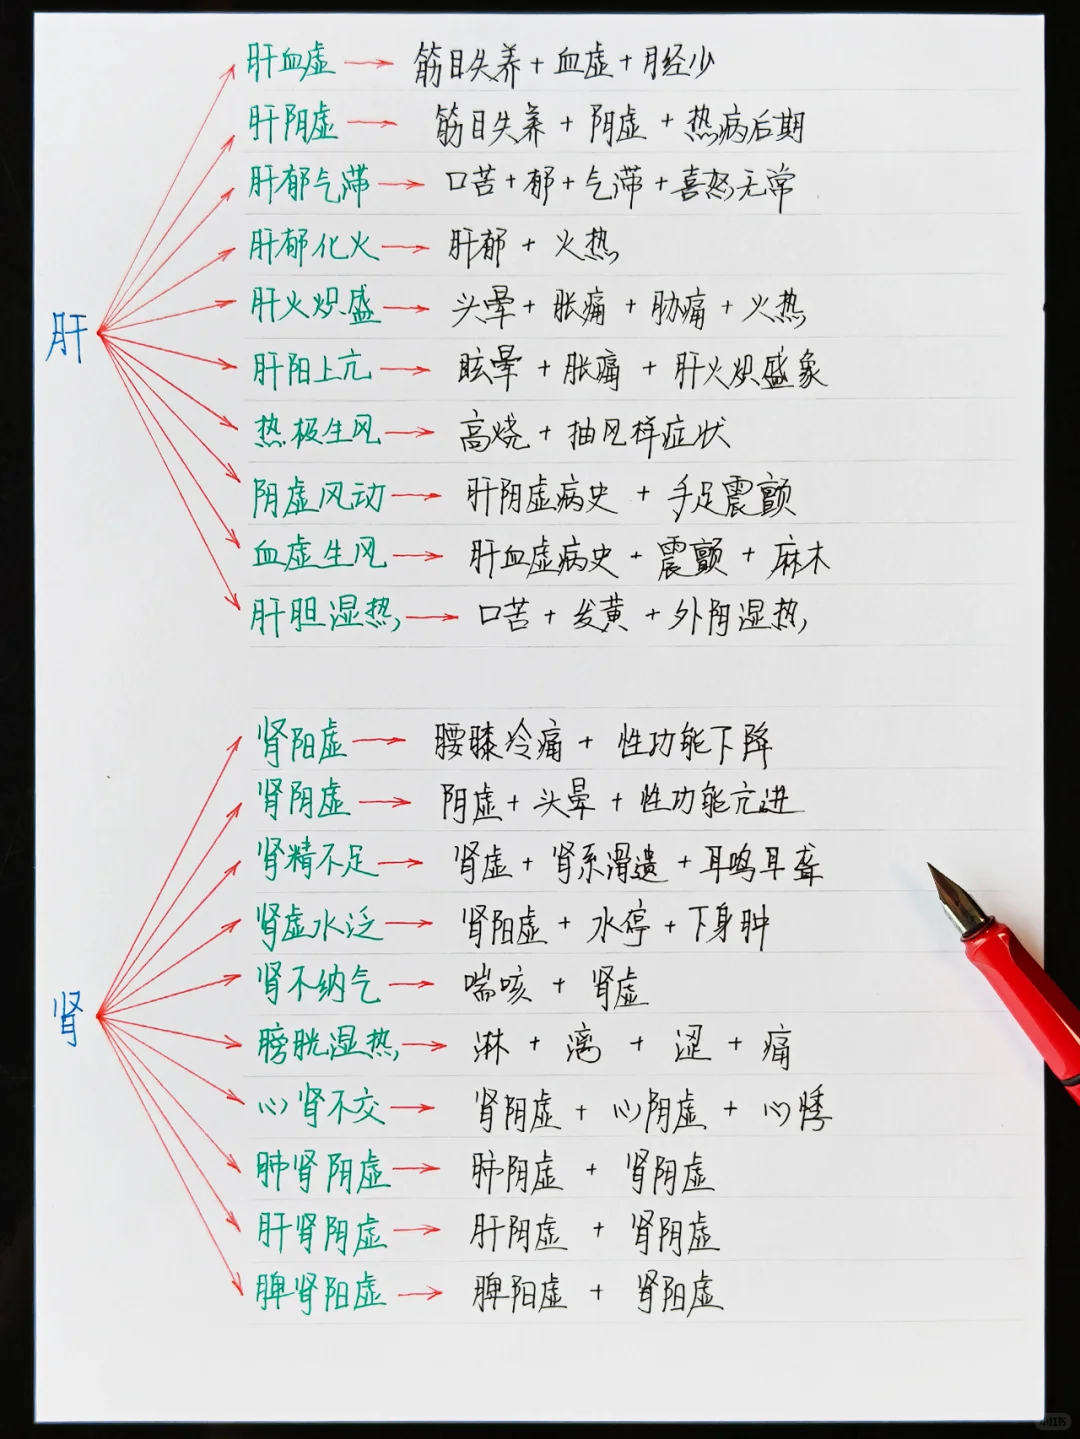 肝
肝血虚 → 筋目失养 + 血虚 + 月经少
肝阴虚 → 筋目失养 + 阴虚 + 热病后期
肝郁气滞 → 口苦 + 郁 + 气滞 + 喜怒无常
肝郁化火 → 肝郁 + 火热
肝火炽盛 → 头晕 + 胀痛 + 胁痛 + 火热
肝阳上亢 → 眩晕 + 胀痛 + 肝火炽盛象
热极生风 → 高烧 + 抽风样症状
阴虚风动 → 肝阴虚病史 + 手足震颤
血虚生风 → 肝血虚病史 + 震颤 + 麻木
肝胆湿热 → 口苦 + 发黄 + 外阴湿热
肾
肾阳虚 → 腰膝冷痛 + 性功能下降
肾阴虚 → 阴虚 + 头晕 + 性功能亢进
肾精不足 → 肾虚 + 肾系滑遗 + 耳鸣耳聋
肾虚水泛 → 肾阳虚 + 水停 + 下身肿
肾不纳气 → 喘咳 + 肾虚
膀胱湿热 → 淋 + 漓 + 涩 + 痛
心肾不交 → 肾阴虚 + 心阴虚 + 心悸
肺肾阴虚 → 肺阴虚 + 肾阴虚
肝肾阴虚 → 肝阴虚 + 肾阴虚
脾肾阳虚 → 脾阳虚 + 肾阳虚